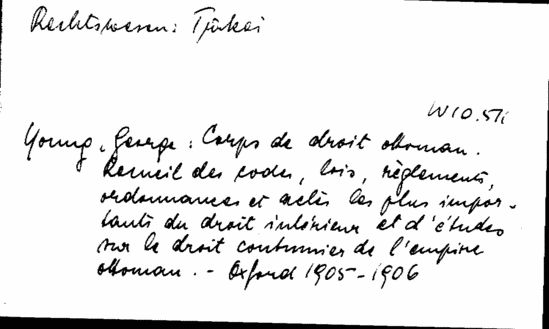 Rechtswesen: Türkei
W10.571
Young, George: Corps de droit ottoman.
Recueil des codes, lois, règlements,
ordonnances et actes les plus impor-
tants du droit intérieur et d'études
sur le droit coutumier de l'empire
ottoman. - Oxford 1905-1906